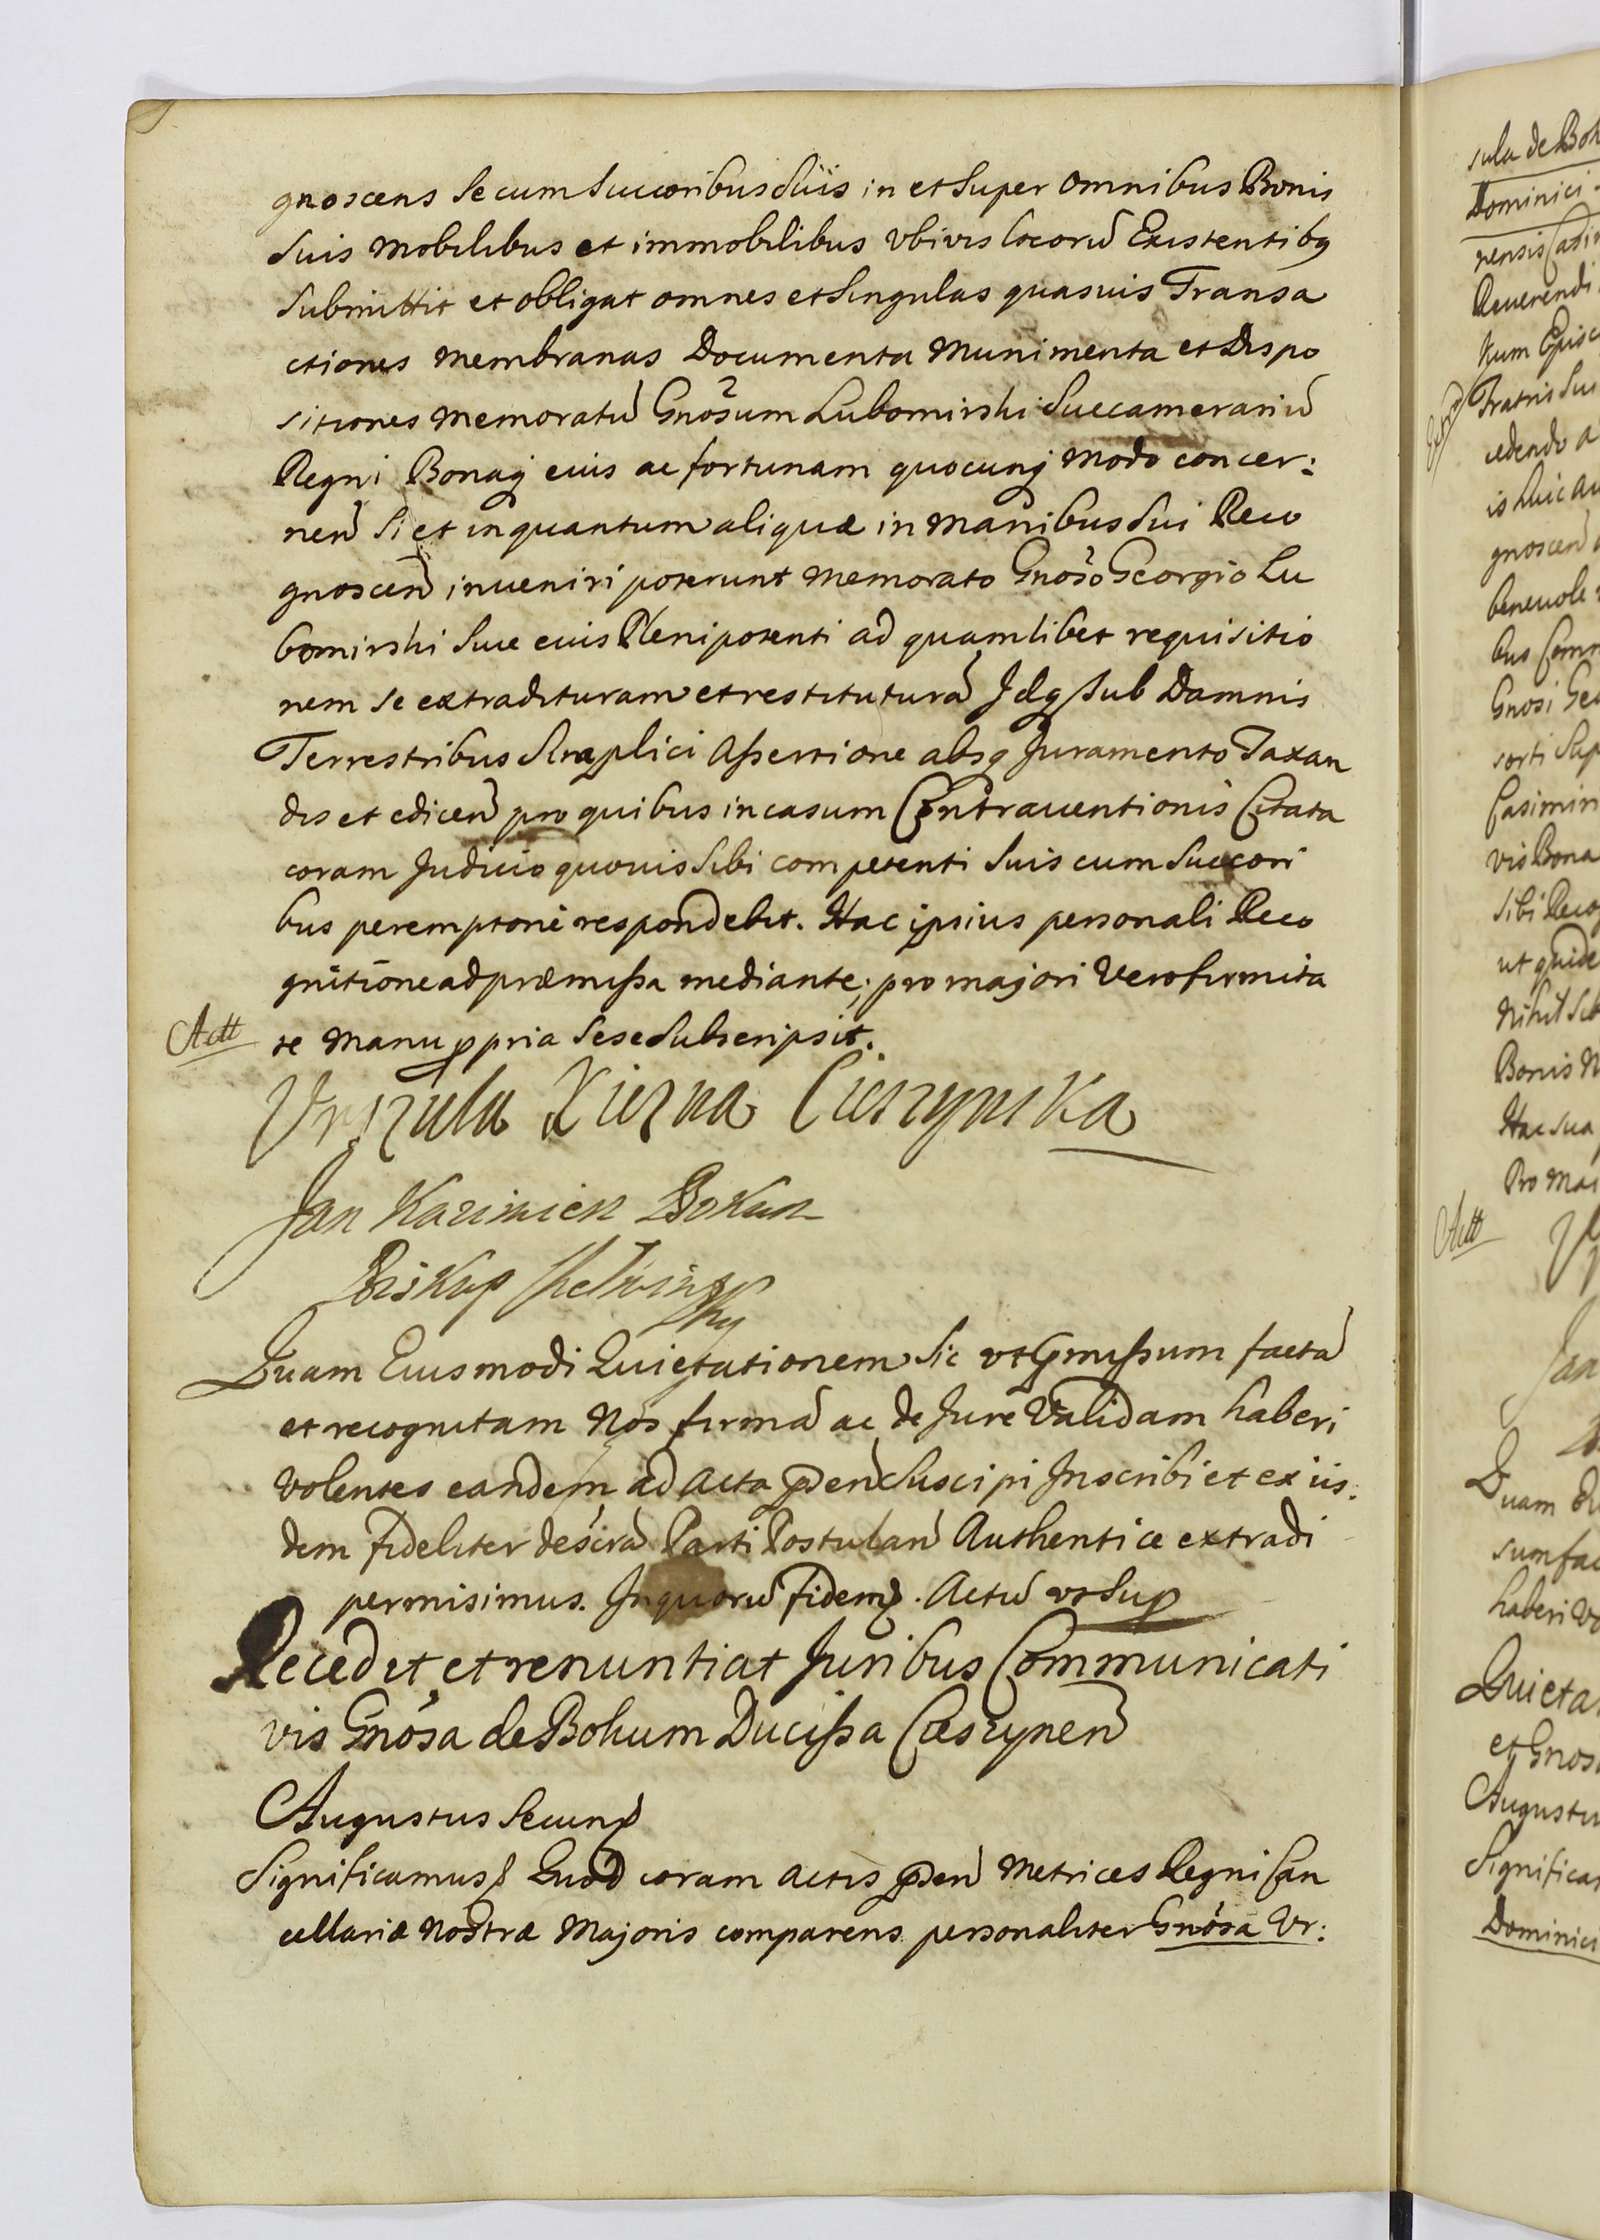 gnoscens se cum succoribus suis in et super omnibus Bonis
suis mobilibus et immobilibus vbivis locorū Existentibq
submittit et obligat omnes et singulas quasuis Transa
ctiones membranas Documenta munimenta et Dispo
sitiones memoratū Gnōsum Lubomirski Succamerariū
Regni Bonaq eius ac fortunam quocunq modo concer:
nen̄ si et inquantum aliquæ in manibus sui Reco
gnoscen̄ inueniri poterunt memorato Gnōso Georgio Lu
bomirski siue eius Plenipotenti ad quamlibet requisitio
nem se extradituram et restituturā Idq sub Damnis
Terrestribus simplici Assertione absq Juramento Taxan
dis et edicen̄ pro quibus in casum Contrauentionis Citata
coram Judicio quouis sibi competenti suis cum succori
bus peremptoriè respondebit. Hac ipsius personali Reco
gnitione ad præmissa mediante; pro majori vero firmita
Actt
te manu ppria sese subscripsit.
Vrszula Xięzna Cieszynska
Jan Kazimierz Bokum
Biskup Chełmin
sky
Quam Eiusmodi Quietationem sic vt pmissum factā
et recognitam Nos firmā ac de Jure Validam haberi
volentes eandem ad acta pden̄ suscipi Inscribi et ex iis:
dem fideliter descrā Parti Postulan̄ Authentice extradi
permisimus. In quorū fidem. Actū vt sup
Recedit et renuntiat Juribus Communicati
vis Gnōsa de Bohum Ducissa Cieszynen̄
Augustus Secund
Significamus Quod coram actis pden̄ Metrices Regni Can
cellariæ Nostræ Majoris comparens personaliter Gnōsa Vr:
sula de Boh
Dominici
nensis Casi
Reuerendi
kum Episc
Fratris sui
cedendo a
is huic au
gnoscen̄
beneuole
bus Comm
Gnosi Geo
sorti sup
Casimiri
vis Bona
sibi Recog
ut quide
Nihil sib
Bonis N
Hac sua
Pro Mai
Actt
Jan
Quam
sum fac
haberi vo
Quieta
et Gnos
Augustu
Significa
Dominici